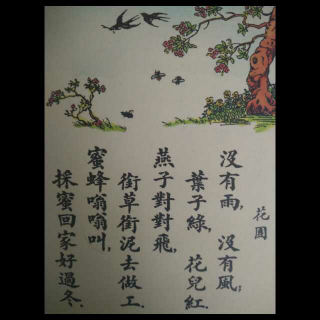 花園
沒有雨，沒有風；
葉子綠，花兒紅．
燕子對對飛，
銜草銜泥去做工．
蜜蜂嗡嗡叫，
採蜜回家好過冬．